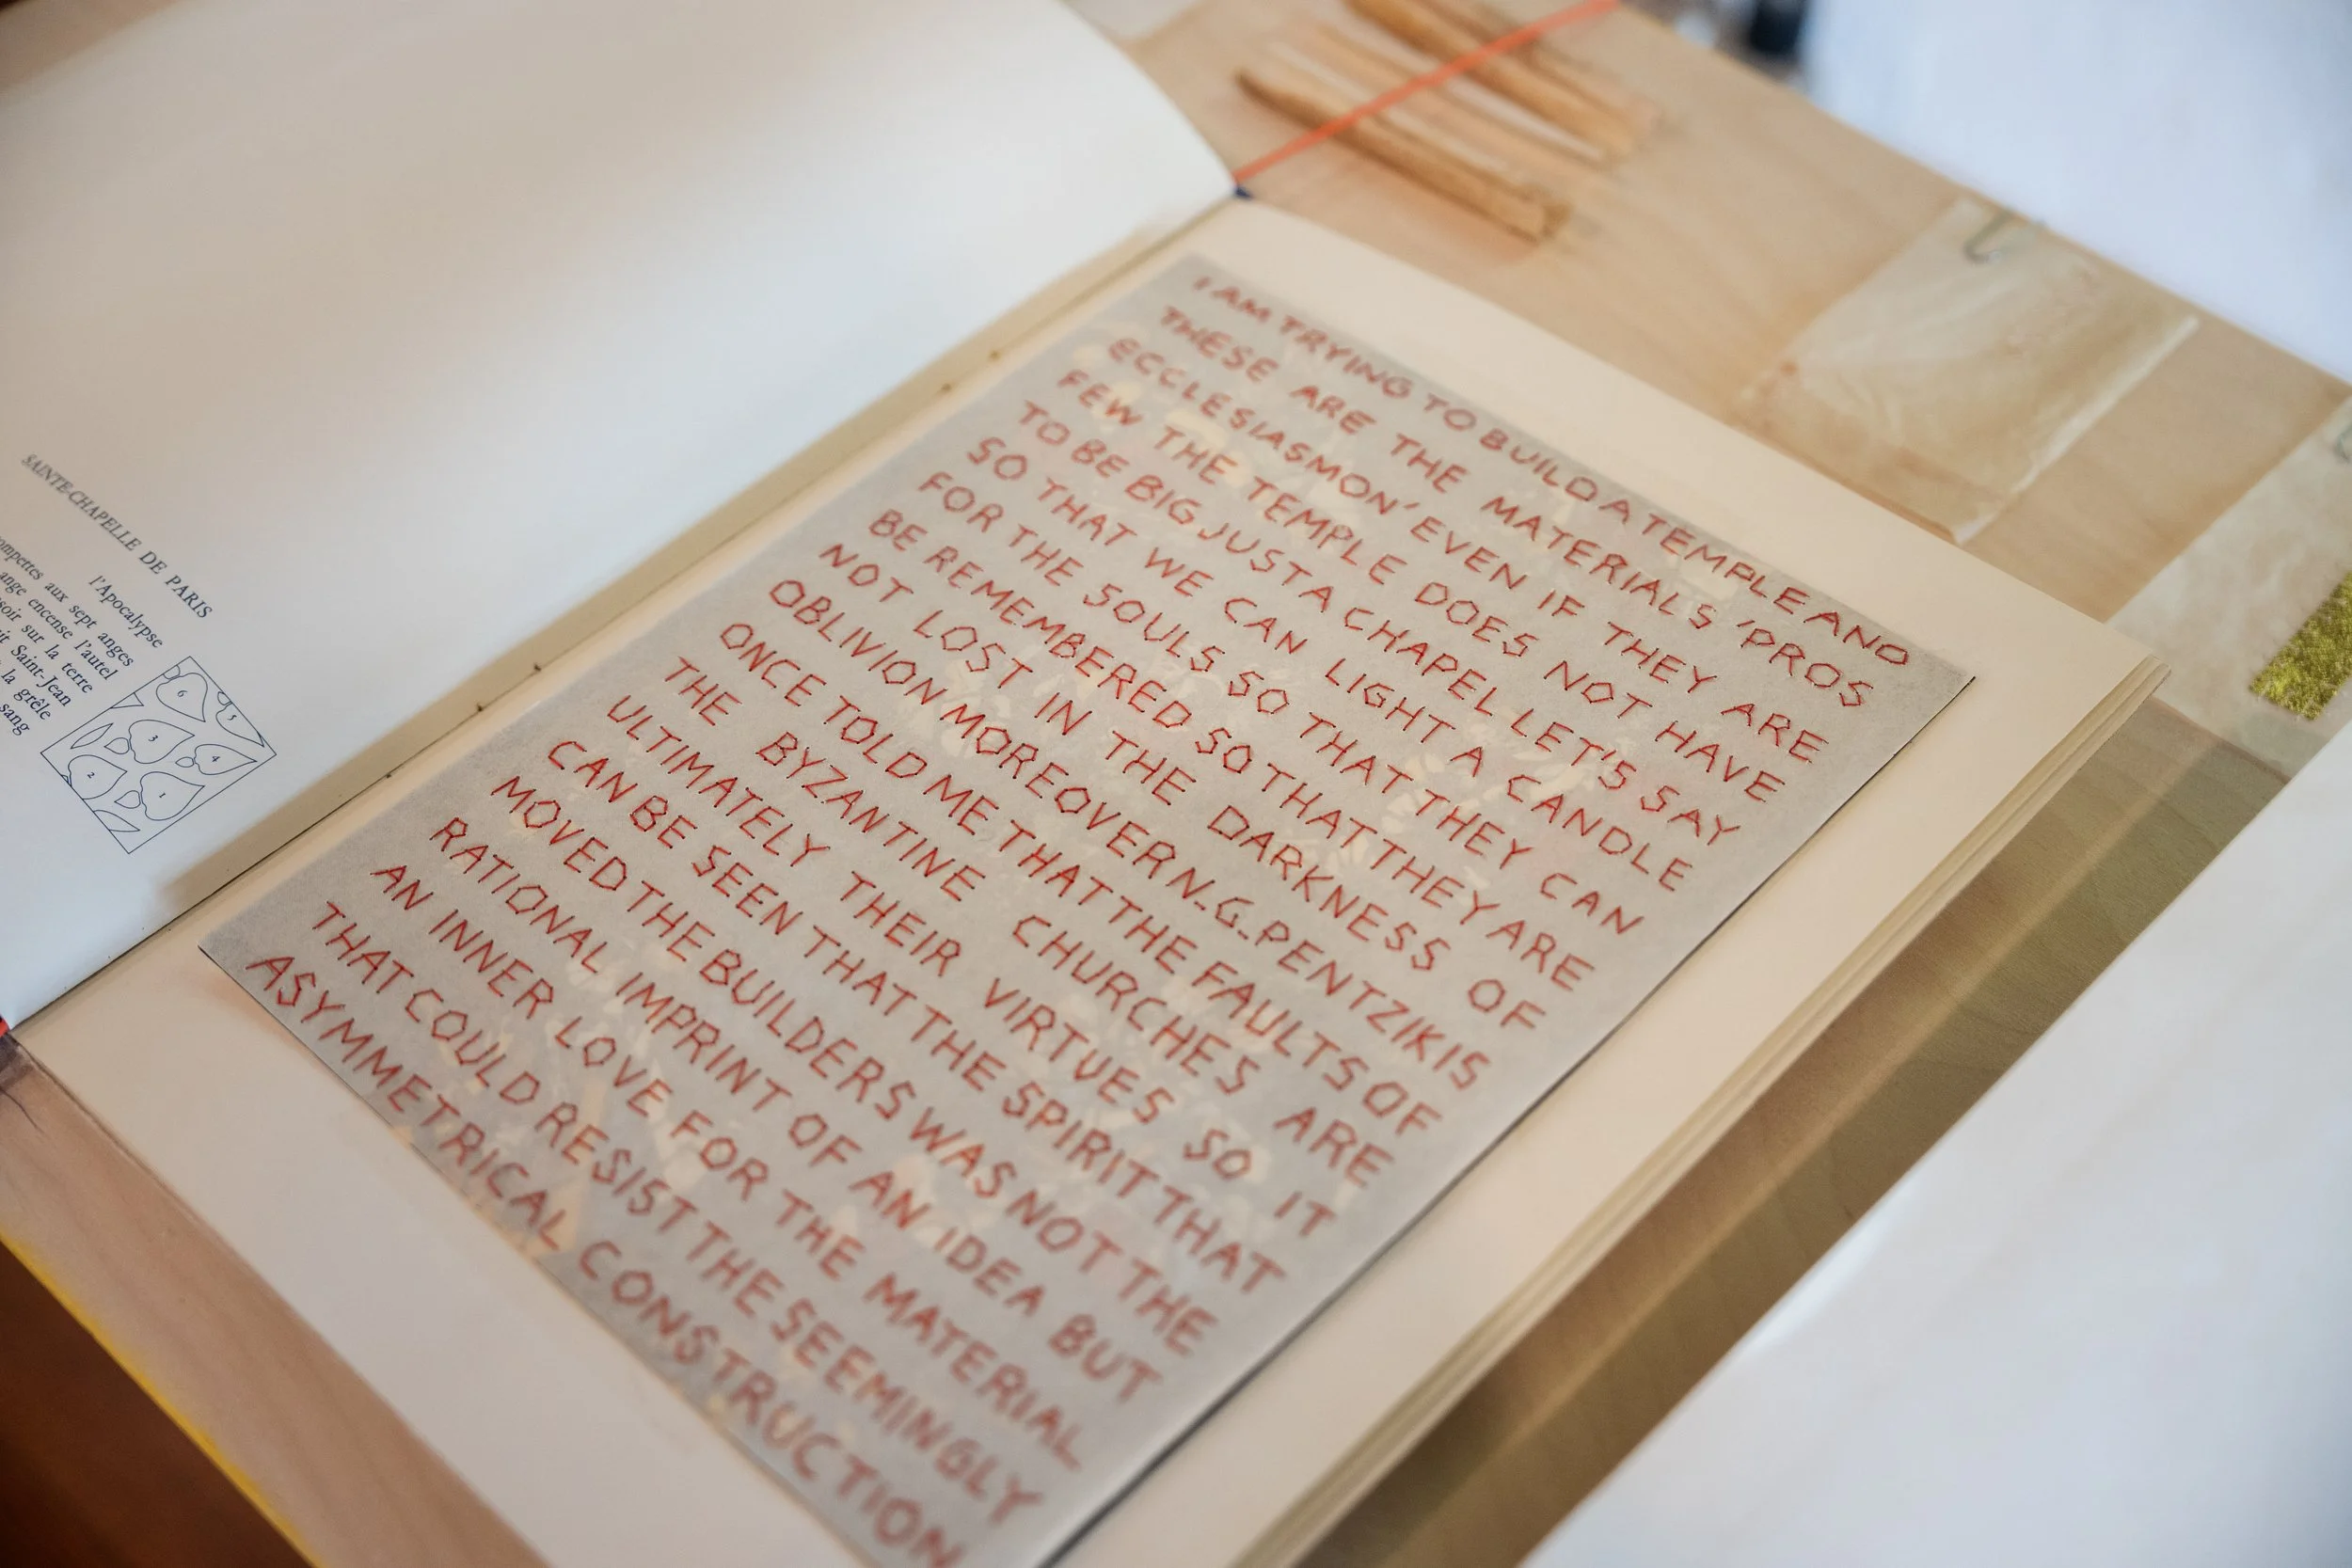 SAINTE-CHAPELLE DE PARIS
l'Apocalypse
aux sept anges
ange encense l'autel
sur la terre
Saint-Jean
la grêle
sang
6
5
3
4
2
1
I AM TRYING TO BUILD A TEMPLE AND
THESE ARE THE MATERIALS 'PROS
ECCLESIASMON' EVEN IF THEY ARE
FEW THE TEMPLE DOES NOT HAVE
TO BE BIG JUST A CHAPEL LET'S SAY
SO THAT WE CAN LIGHT A CANDLE
FOR THE SOULS SO THAT THEY CAN
BE REMEMBERED SO THAT THEY ARE
NOT LOST IN THE DARKNESS OF
OBLIVION MOREOVER N.G.PENTZIKIS
ONCE TOLD ME THAT THE FAULTS OF
THE BYZANTINE CHURCHES ARE
ULTIMATELY THEIR VIRTUES SO IT
CAN BE SEEN THAT THE SPIRIT THAT
MOVED THE BUILDERS WAS NOT THE
RATIONAL IMPRINT OF AN IDEA BUT
AN INNER LOVE FOR THE MATERIAL
THAT COULD RESIST THE SEEMINGLY
ASYMMETRICAL CONSTRUCTION